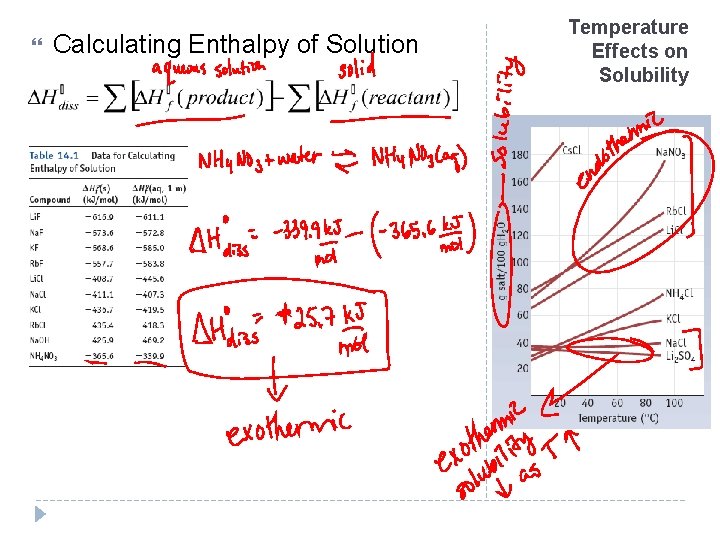 Calculating Enthalpy of Solution
Temperature
Effects on
Solubility
aqueous solution solid
ΔH°diss = ∑ ΔH°f (product) − ∑ ΔH°f (reactant)
NH4NO3 + water ⇌ NH4NO3(aq)
ΔH°diss = -339.9 kJ/mol − (-365.6 kJ/mol)
ΔH°diss = +25.7 kJ/mol
exothermic
Table 14.1 Data for Calculating
Enthalpy of Solution
Compound ΔH°f(s) (kJ/mol) ΔH°f(aq, 1 m) (kJ/mol)
LiF −616.9 −611.1
NaF −573.6 −572.8
KF −568.6 −585.0
RbF −557.7 −583.8
LiCl −408.7 −445.6
NaCl −411.1 −407.3
KCl −436.7 −419.5
RbCl −435.4 −418.3
NaOH −425.9 −469.2
NH4NO3 −365.6 −339.9
solubility
g salt/100 g H2O
180
160
140
120
100
80
60
40
20
CsCl
NaNO3
RbCl
LiCl
NH4Cl
KCl
NaCl
Li2SO4
endothermic
20 40 60 80 100
Temperature (°C)
exothermic
solubility
↓ as T ↑